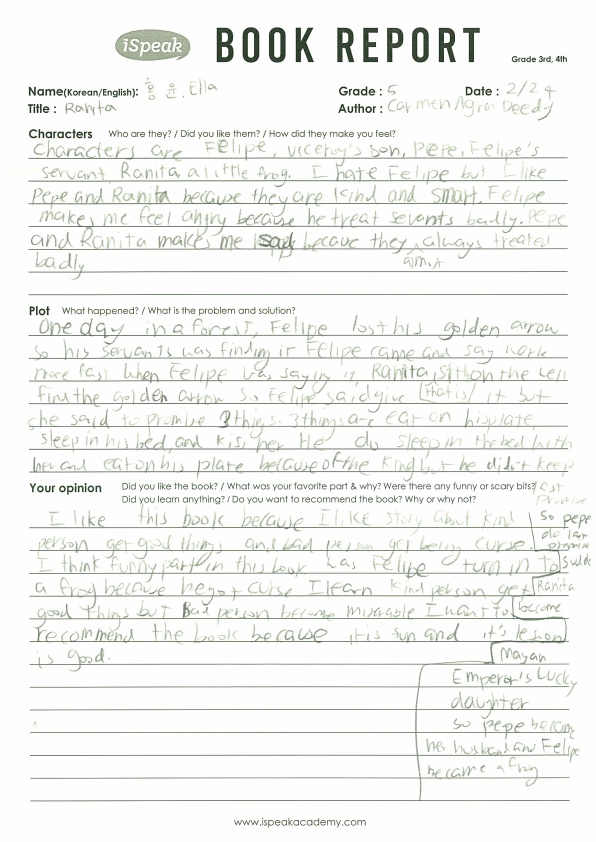 iSpeak BOOK REPORT
Grade 3rd, 4th
Name(Korean/English): 홍 윤. Ella Grade : 5 Date : 2/24
Title : Ranita Author : Carmen Agra Deedy
Characters Who are they? / Did you like them? / How did they make you feel?
Characters are Felipe, viceroy's son, Pepe, Felipe's
servant Ranita a little frog. I hate Felipe but I like
Pepe and Ranita because they are kind and smart. Felipe
makes me feel angry because he treat sevants badly. Pepe
and Ranita makes me sad becaue they always treated
badly
Plot What happened? / What is the problem and solution?
One day in a forest, Felipe lost his golden arrow
so his servants was finding it Felipe came and say work
more fast when Felipe was saying it, Ranita sit on the well
find the golden arrow so Felipe said give that is it but
she said to promise 3 things. 3 things are eat on his plate,
sleep in his bed, and kis her He do sleep in the bed with
her and eat on his plate because of the king but he didn't keep
Your opinion Did you like the book? / What was your favorite part & why? Were there any funny or scary bits?
Did you learn anything? / Do you want to recommend the book? Why or why not?
I like this book because I like story about kind
person get good things and bad person get being curse.
I think funny part in this book was Felipe turn in to
a frog because he got curse I learn kind person get
good thing but Bad person become miserable I want to
recommend the book because it is sun and it's lesson
is good.
est
Promise
so pepe
do last
promise
Ranita
become
Mayan
Emperor's Lucky
daughter
so pepe became
her husband and Felipe
became a frog
www.ispeakacademy.com